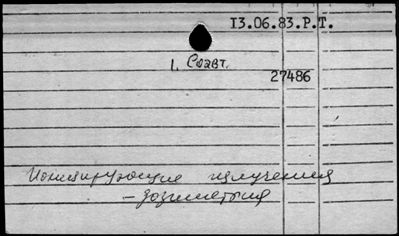 13.06.83.Р.Т.
1. Соавт.
27486
Ионизирующие излучения
— дозиметрия